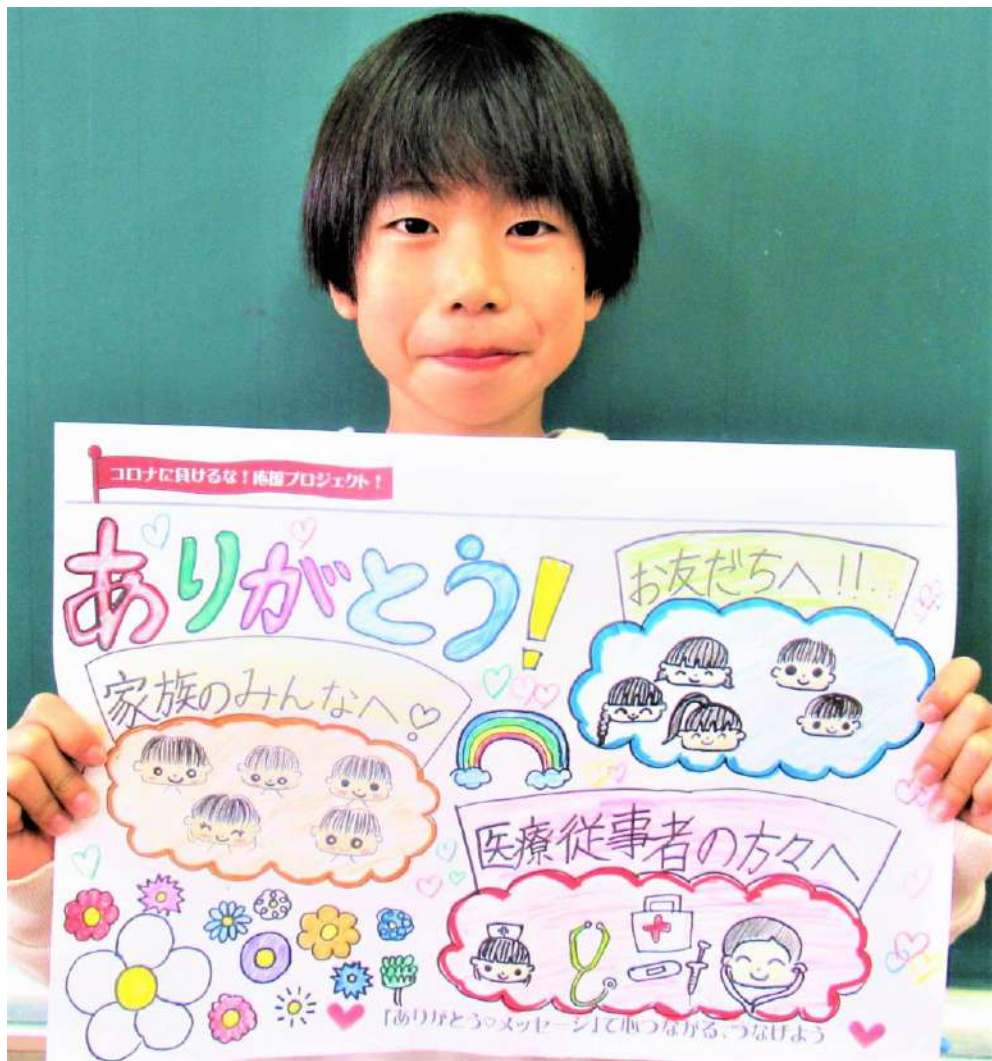 コロナに負けるな！応援プロジェクト！
ありがとう！
お友だちへ!!
家族のみんなへ♡
医療従事者の方々へ
「ありがとう♡メッセージ」で心つながる、つなげよう